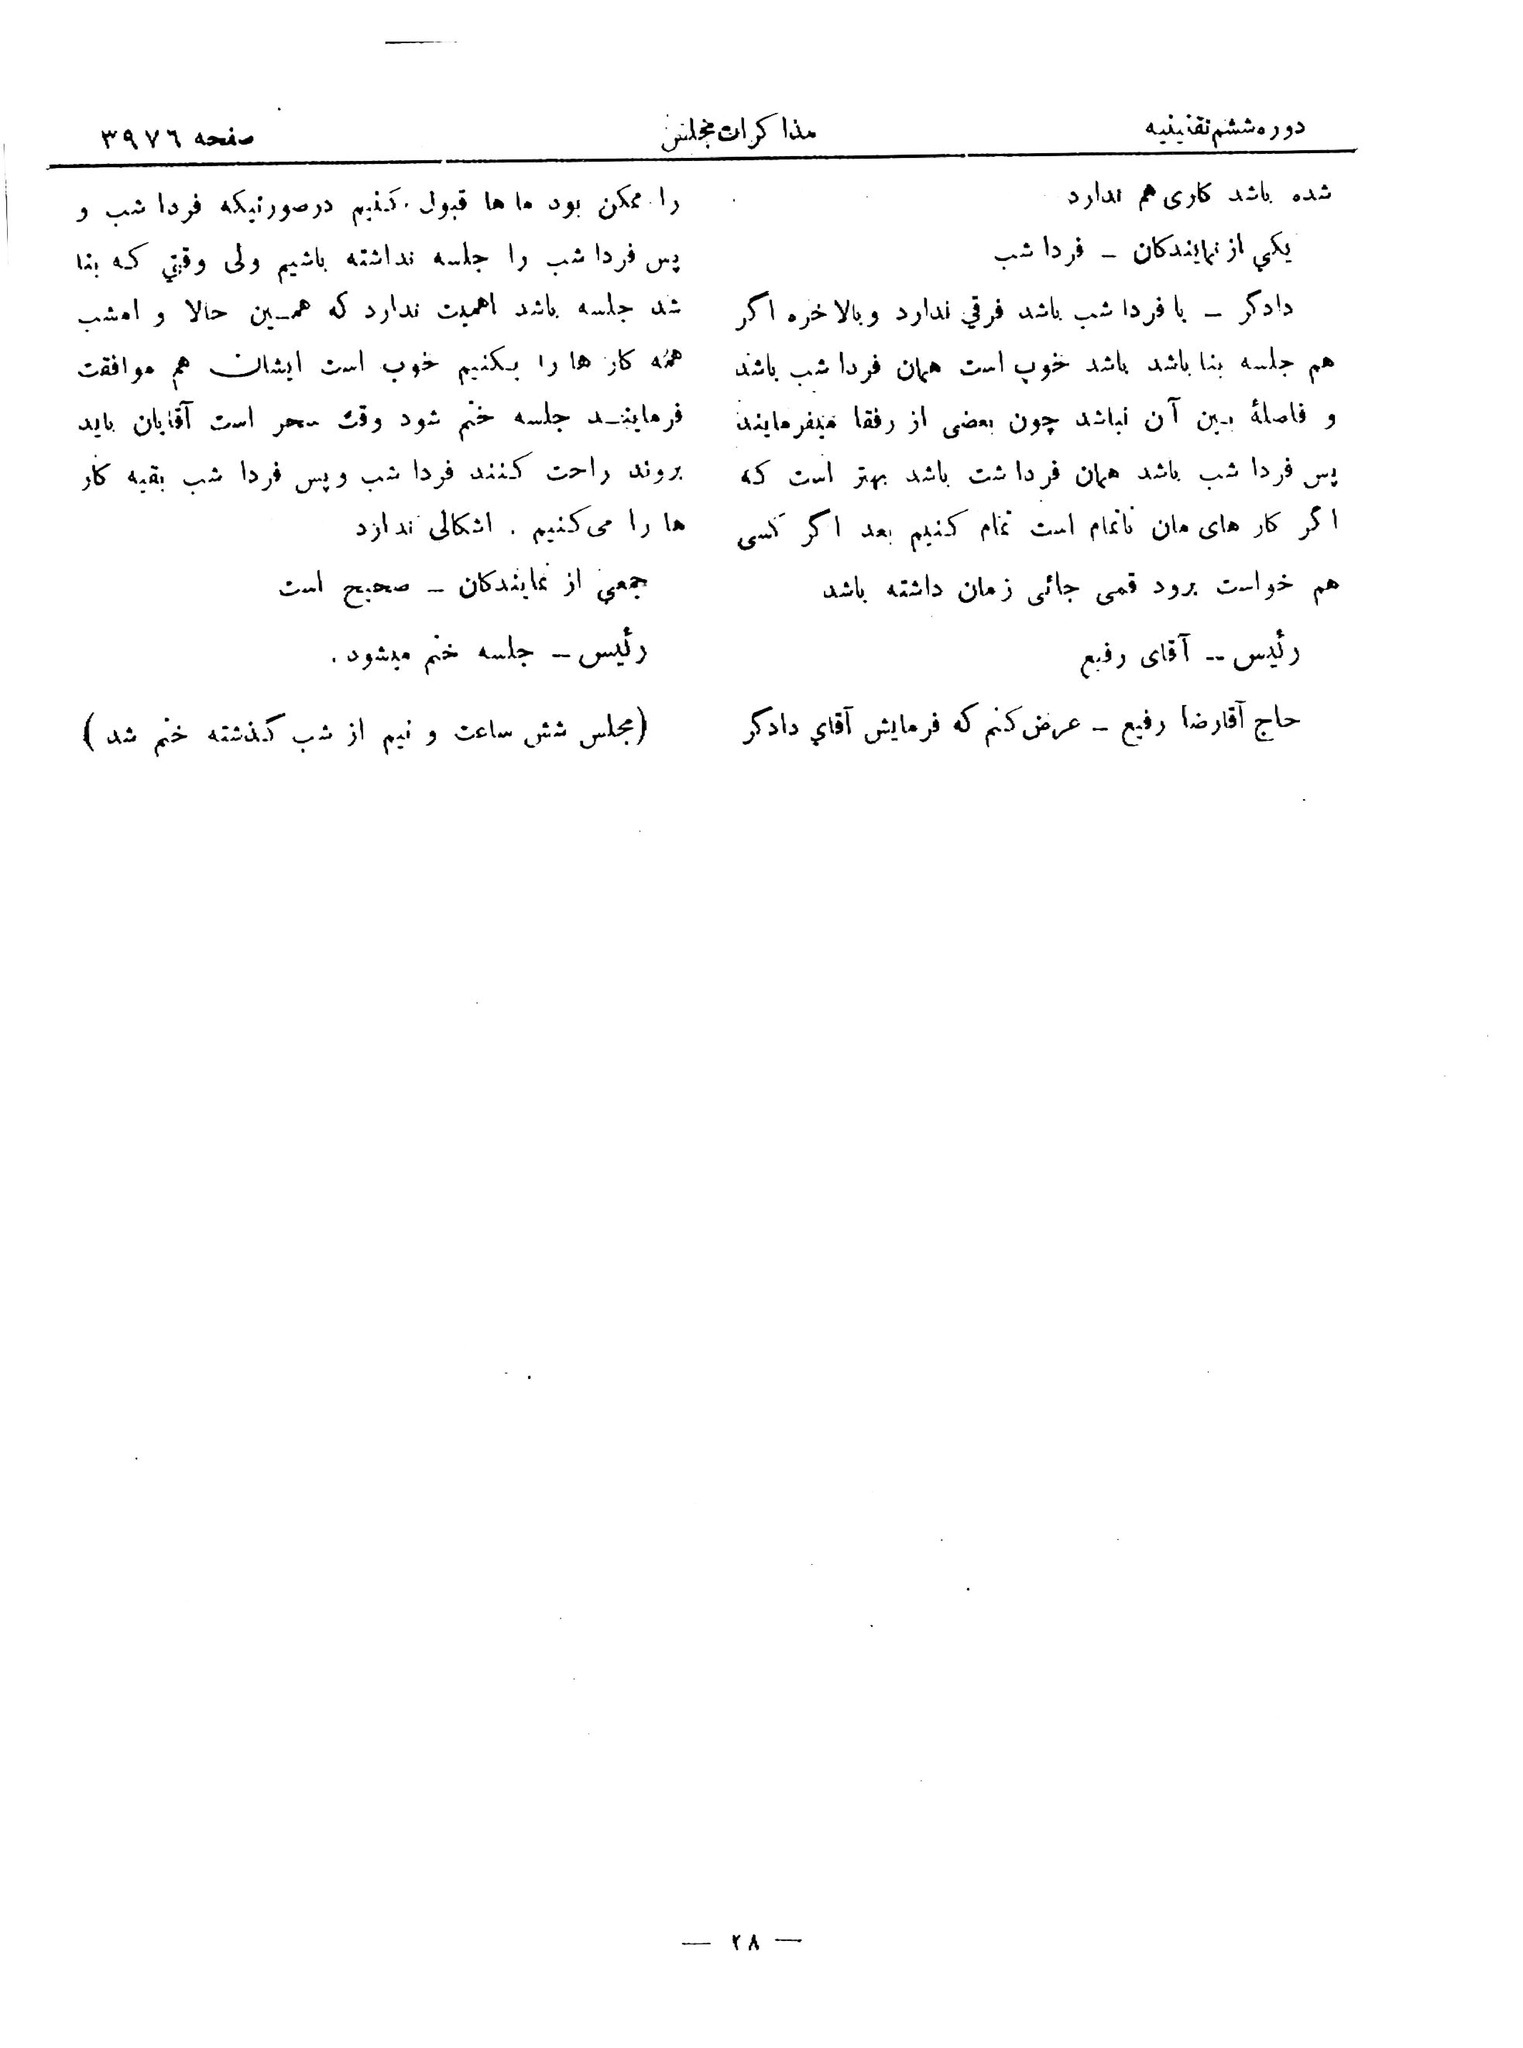 دوره ششم تقنینیه
مذاکرات مجلس
صفحه ۳۹۷۶
شده باشد کاری هم ندارد
یکی از نمایندکان ـ فردا شب
دادکر ـ با فردا شب باشد فرقی ندارد و بالاخره اکر
هم جلسه بنا باشد باشد خوب است همان فردا شب باشد
و فاصلهٔ بین آن نباشد چون بعضی از رفقا میفرمایند
پس فردا شب باشد همان فردا شت باشد بهتر است که
اکر کار های مان ناتمام است تمام کنیم بعد اکر کسی
هم خواست برود قمی جائی زمان داشته باشد
رئیس ـ آقای رفیع
حاج آقارضا رفیع ـ عرض کنم که فرمایش آقای دادکر
را ممکن بود ما ها قبول کنیم در صورتیکه فردا شب و
پس فردا شب را جلسه نداشته باشیم ولی وقتی که بنا
شد جلسه باشد اهمیت ندارد که همین حالا و امشب
همه کار ها را بکنیم خوب است ایشان هم موافقت
فرمایند جلسه ختم شود وقت سحر است آقایان باید
بروند راحت کنند فردا شب و پس فردا شب بقیه کار
ها را می‌کنیم . اشکالی ندارد
جمعی از نمایندکان ـ صحیح است
رئیس ـ جلسه ختم میشود .
(مجلس شش ساعت و نیم از شب کذشته ختم شد)
— ۲۸ —